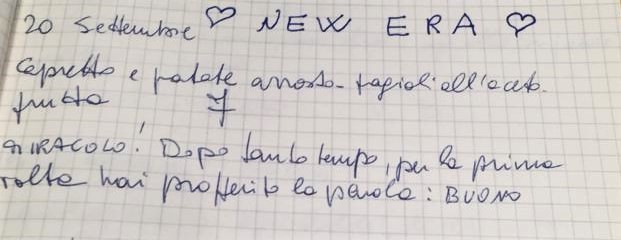 20 Settembre ♡ NEW ERA ♡
Capretto e patate arrosto - fagioli all'aceto.
frutta 7
MIRACOLO! Dopo tanto tempo, per la prima
volta hai profferito la parola: BUONO